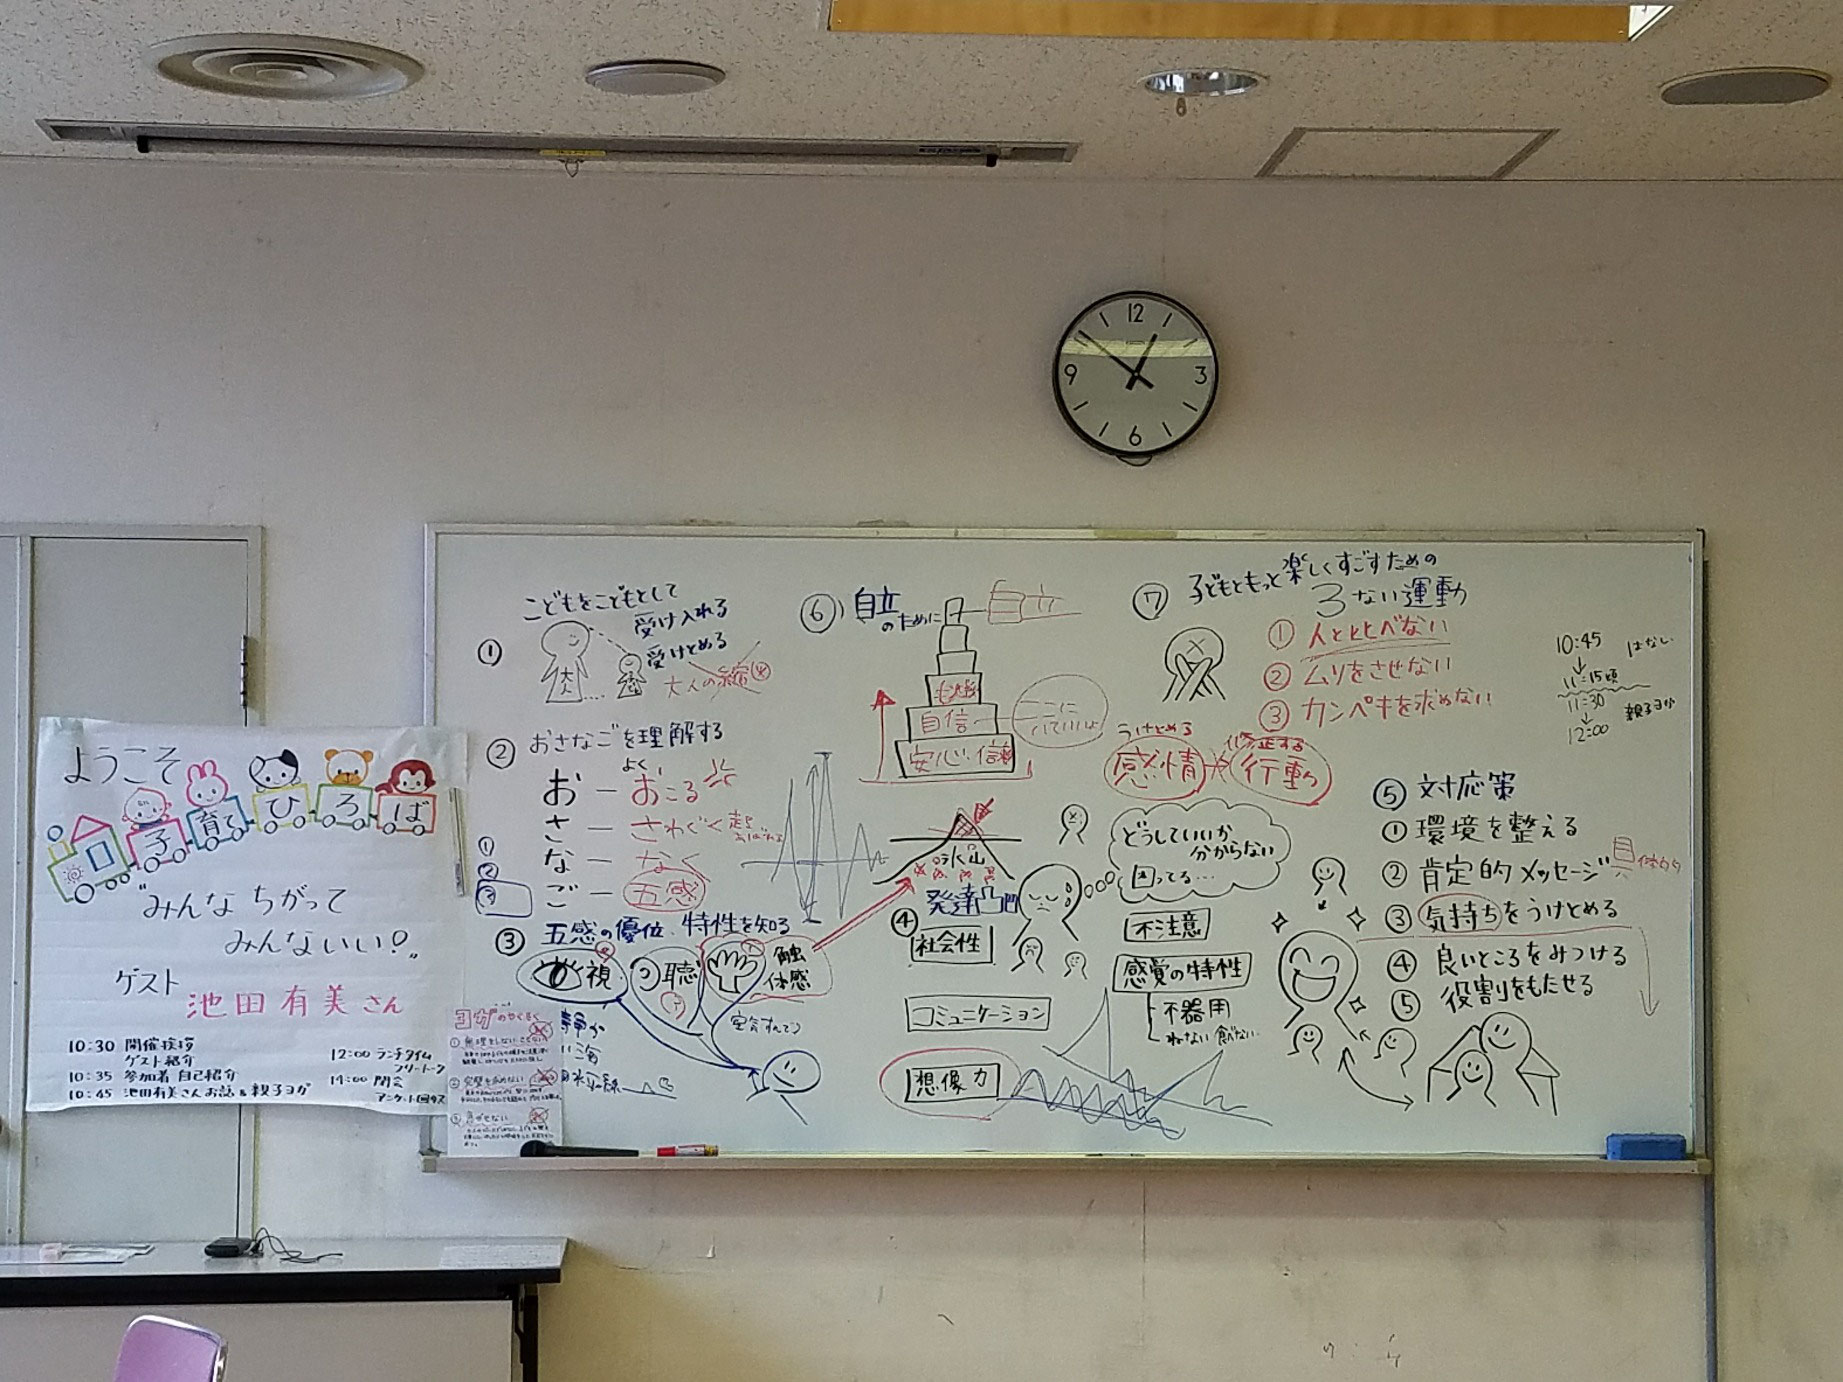 ようこそ
子育てひろば
"みんなちがって
みんないい!"
ゲスト
池田有美さん
10:30 開催挨拶
ゲスト紹介
10:35 参加者自己紹介
10:45 池田有美さんお話&親子ヨガ
12:00 ランチタイム
フリートーク
14:00 閉会
アンケート回収
① こどもをこどもとして
受け入れる
受けとめる
大人
大人の縮
② おさなごを理解する
よく
お − おこる
さ − さわぐ
な − なく
ご − 五感
①
②
③
③ 五感の優位、特性を知る
視
聴
触
体感
ヨガのやくそく
静か
海
⑥ 自立
のために
自立
自信
安心・信頼
ここに
いていいよ
氷山
④ 発達凸凹
社会性
コミュニケーション
想像力
どうしていいか
分からない
困ってる…
不注意
感覚の特性
不器用
ねない 食べない
⑦ 子どもともっと楽しくすごすための
3ない運動
① 人とくらべない
② ムリをさせない
③ カンペキを求めない
うけとめる
感情
修正する
行動
10:45 はなし
↓
11:15頃
11:30 親子ヨガ
↓
12:00
⑤ 対応策
① 環境を整える
② 肯定的メッセージ 具体的
③ 気持ちをうけとめる
④ 良いところをみつける
⑤ 役割をもたせる
12
3
6
9